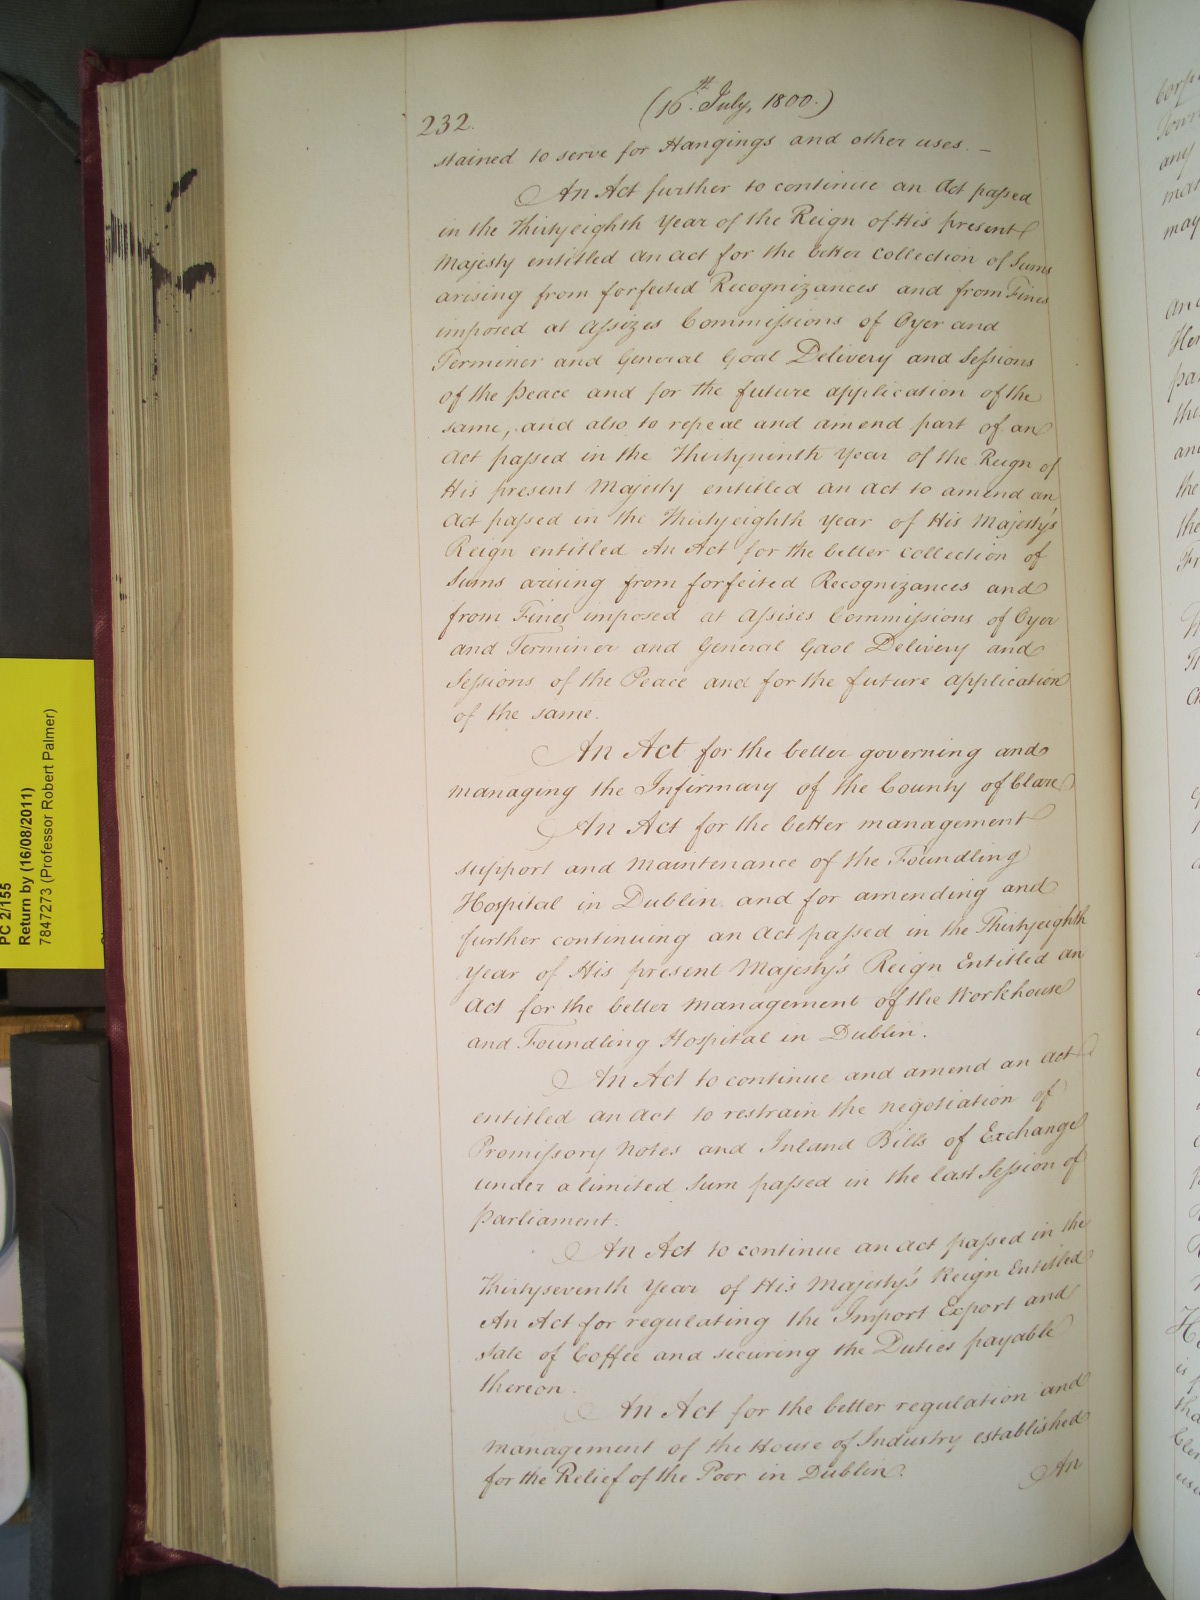 232.
(16th. July, 1800.)
stained to serve for Hangings and other uses. —
An Act further to continue an Act passed
in the Thirtyeighth Year of the Reign of His present
Majesty entitled an act for the better collection of Sums
arising from forfeited Recognizances and from Fines
imposed at Assizes Commissions of Oyer and
Terminer and General Goal Delivery and Sessions
of the Peace and for the future application of the
same, and also to repeal and amend part of an
Act passed in the Thirtyninth Year of the Reign of
His present Majesty entitled an act to amend an
Act passed in the Thirtyeighth Year of His Majesty's
Reign entitled An Act for the better collection of
Sums arising from forfeited Recognizances and
from Fines imposed at Assises Commissions of Oyer
and Terminer and General Gaol Delivery and
Sessions of the Peace and for the future application
of the same.
An Act for the better governing and
managing the Infirmary of the County of Clare
An Act for the better management
support and maintenance of the Foundling
Hospital in Dublin and for amending and
further continuing an Act passed in the Thirtyeighth
Year of His present Majesty's Reign Entitled an
Act for the better management of the Workhouse
and Foundling Hospital in Dublin.
An Act to continue and amend an act
entitled an act to restrain the negotiation of
Promissory Notes and Inland Bills of Exchange
under a limited Sum passed in the last Session of
Parliament.
An Act to continue an act passed in the
Thirtyseventh Year of His Majesty's Reign Entitled
An Act for regulating the Import Export and
Sale of Coffee and securing the Duties payable
thereon.
An Act for the better regulation and
management of the House of Industry established
for the Relief of the Poor in Dublin.
An
PC 2/155
Return by (16/08/2011)
7847273 (Professor Robert Palmer)